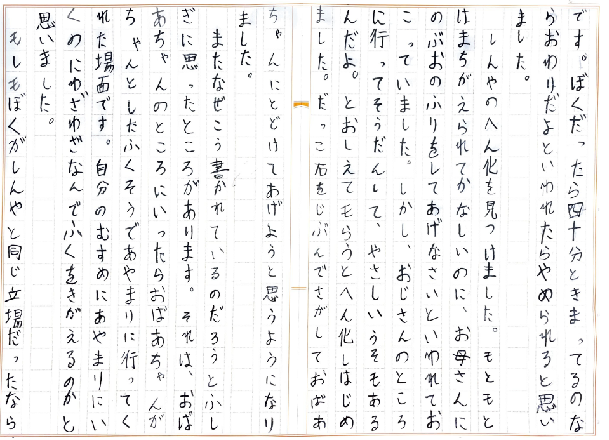 です。ぼくだったら四十分ときまってるのな
らおわりだよといわれたらやめられると思い
ました。
しんやのへん化を見つけました。もともと
はまちがえられてかなしいのに、お母さんに
のぶおのふりをしてあげなさいといわれてお
こっていました。しかし、おじさんのところ
に行ってそうだんして、やさしいうそもある
んだよ。とおしえてもらうとへん化しはじめ
ました。だっこ石をじぶんでさがしておばあ
ちゃんにとどけてあげようと思うようになり
ました。
またなぜこう書かれているのだろうとふし
ぎに思ったところがあります。それは、おば
あちゃんのところにいったらおばあちゃんが
ちゃんとしたふくそうであやまりに行ってく
れた場面です。自分のむすめにあやまりにい
くのにわざわざなんでふくをきがえるのかと
思いました。
もしもぼくがしんやと同じ立場だったなら